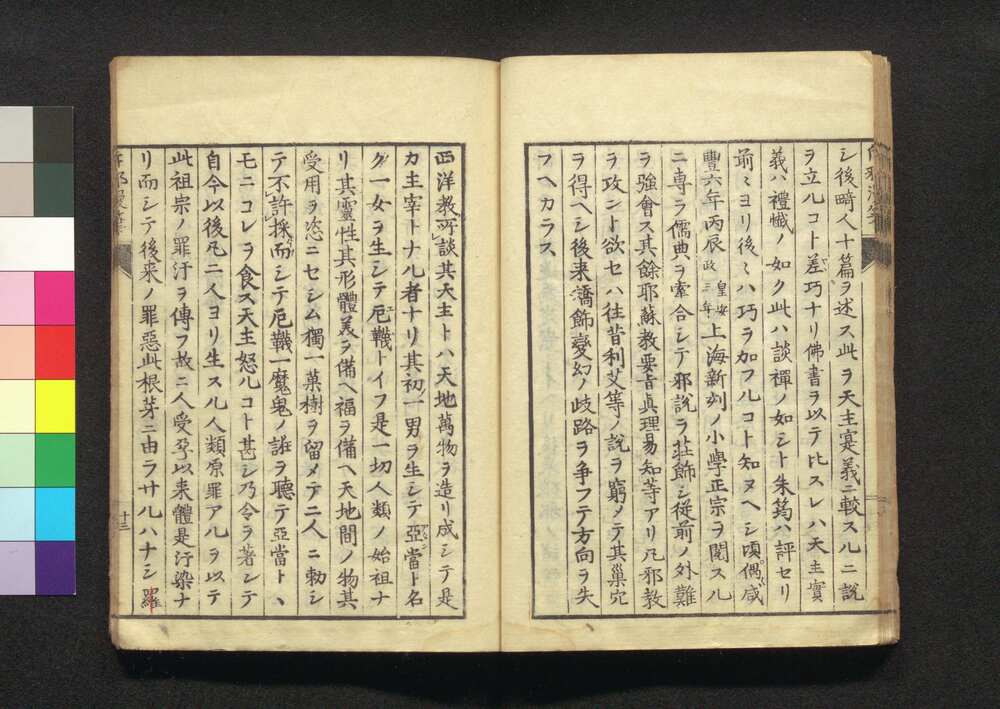 シ後畸人十篇ヲ述ス此ヲ天主寔義ニ較スルニ説
ヲ立ルコト差巧ナリ佛書ヲ以テ比スレハ天主實
義ハ禮懺ノ如ク此ハ談禪ノ如シト朱筠ハ評セリ
前ミヨリ後ミハ巧ヲ加フルコト知ヌヘシ頃偶咸
豐六年丙辰皇安政三年上海新刋ノ小學正宗ヲ閲スル
ニ専ラ儒典ヲ牽合シテ邪説ヲ荘飾シ従前ノ外難
ヲ強會ス其餘耶蘇教要旨眞理易知等アリ凡邪教
ヲ攻ント欲セハ往昔利艾等ノ説ヲ窮メテ其巢穴
ヲ得ヘシ後来濟飾變幻ノ岐路ヲ争フテ方向ヲ失
フヘカラス
西洋教所談其天主トハ天地萬物ヲ造リ成シテ是
カ主宰トナル者ナリ其初一男ヲ生シテ亞當ト名
ク一女ヲ生シテ厄襪トイフ是一切人類ノ始祖ナ
リ其靈性其形體美ヲ備ヘ福ヲ備ヘ天地間ノ物其
受用ヲ恣ニセシム獨一菓樹ヲ留メテ二人ニ勅シ
テ不許採而シテ厄襪一魔鬼ノ誑ヲ聽テ亞當ト、
モニコレヲ食ス天主怒ルコト甚シ乃令ヲ著シテ
自今以後凡二人ヨリ生スル人類原罪アルヲ以テ
此祖宗ノ罪汙ヲ傳フ故ニ人受孕以来體是汙染ナ
リ而シテ後来ノ罪惡此根芽ニ由ラサルハナシ羅
十三